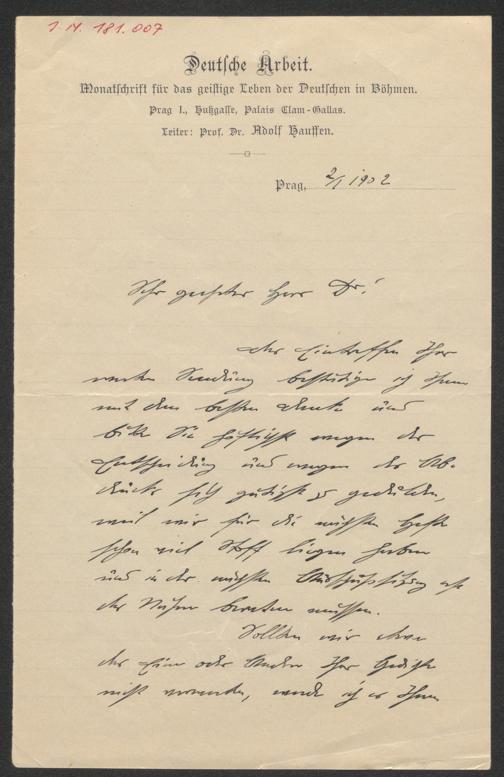 I. N. 181.007
Deutsche Arbeit.
Monatschrift für das geistige Leben der Deutschen in Böhmen.
Prag I., Hußgasse, Palais Clam-Gallas.
Leiter: Prof. Dr. Adolf Hauffen.
Prag, 2/1 1902
Sehr geehrter Herr Dr!
Das Eintreffen Ihrer
werten Sendung bestätige ich Ihnen
mit dem besten Danke und
bitte Sie höflichst wegen der
Entscheidung und wegen des Ab-
drucks sich gütigst zu gedulden,
weil wir für die nächsten Hefte
schon viel Stoff liegen haben
und in der nächsten Ausschußsitzung erst
des Nähern beraten müssen.
Sollten wir etwa
das Eine oder Andere Ihrer Gedichte
nicht verwenden, werde ich es Ihnen